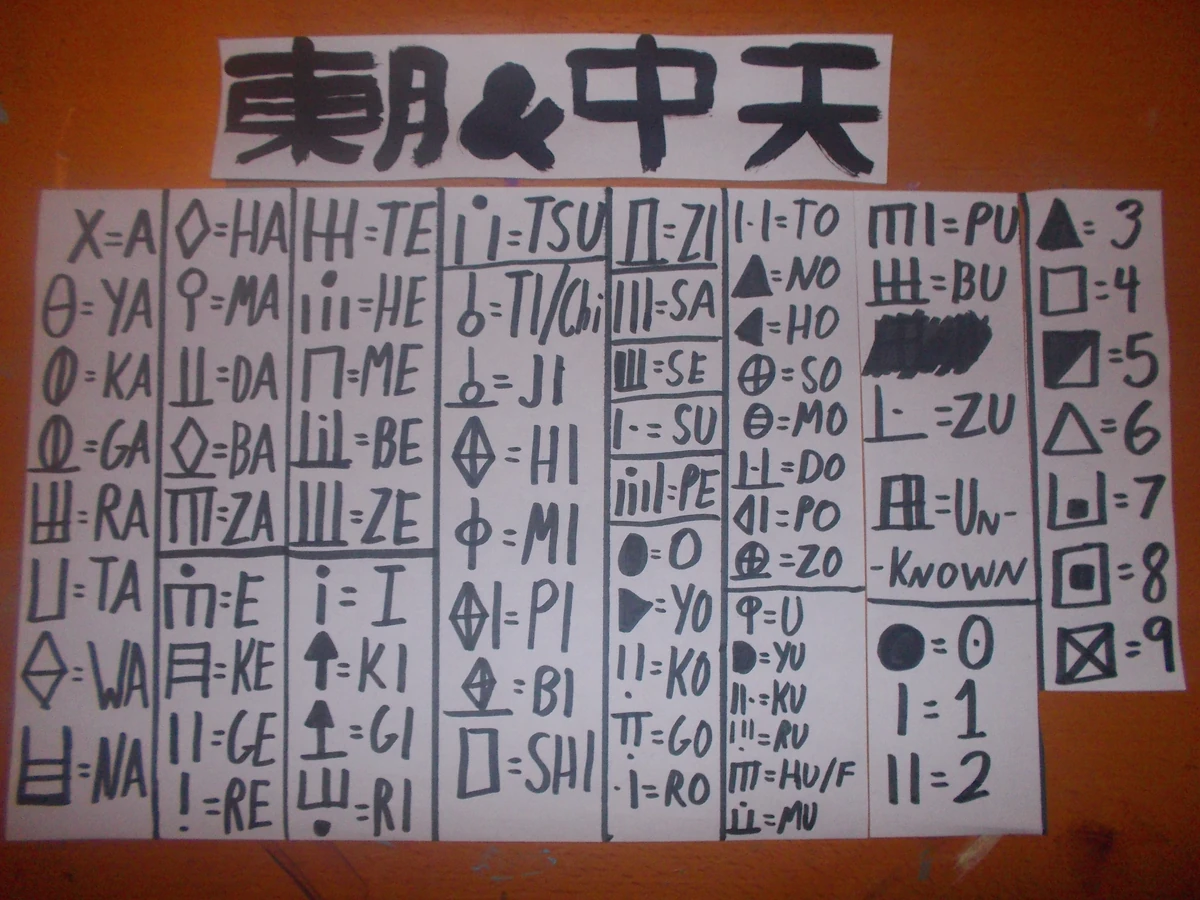 東月&中天
X=A
=YA
=KA
=GA
=RA
=TA
=WA
=NA
=HA
=MA
=DA
=BA
=ZA
=E
=KE
II=GE
!=RE
=TE
=HE
=ME
=BE
=ZE
i=I
=KI
=GI
=RI
=TSU
=TI/Chi
=JI
=HI
=MI
=PI
=BI
=SHI
=ZI
III=SA
=SE
=SU
=PE
=O
=YO
=KO
=GO
=RO
=TO
▲=NO
=HO
⊕=SO
=MO
=DO
=PO
=ZO
=U
=YU
=KU
=RU
=HU/F
=MU
=PU
=BU
=ZU
=UN-
-KNOWN
●=0
I=1
II=2
▲=3
□=4
=5
△=6
=7
=8
=9